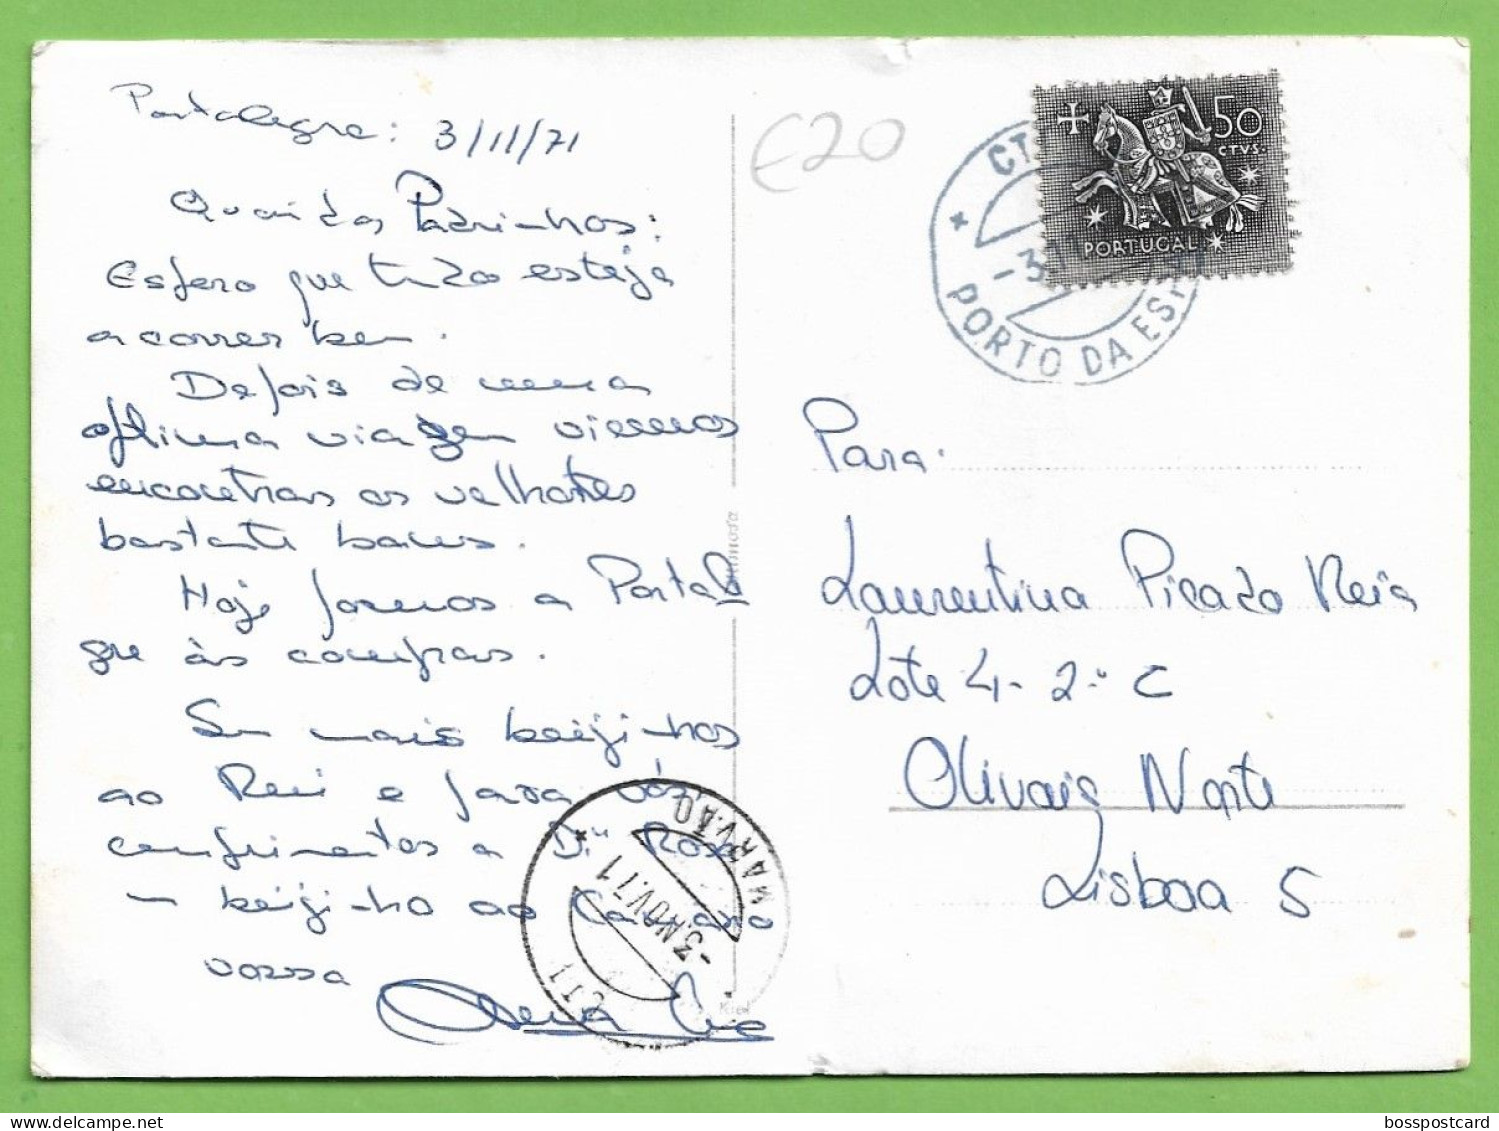 Portalegre: 3/11/71
Queridos Padrinhos:
Espero que tudo esteja
a correr bem.
Depois de uma
óptima viagem viemos
encontrar os velhotes
bastante bons.
Hoje fomos a Portale
gre às compras.
Sem mais beijinhos
ao Rui e para vós
cumprimentos a D. Rosa
beijinho ao
vossa
£20
CT
PORTO DA ESP
- 3.11
50
CTVS.
PORTUGAL
Para:
Laurentina Picado Reia
Lote 4- 2.º C
Olivais Norte
Lisboa 5
MARVÃO
-3.NOV.71
CTT
bosspostcard